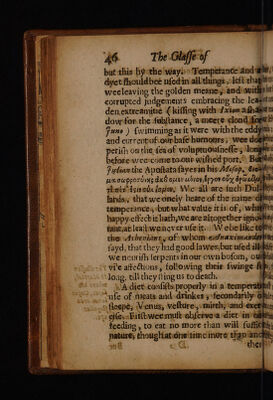 46 The Glasse of
but this by the way. Temperance and a
dyet should bee used in all things, lest that
wee leaving the golden meane, and with
corrupted judgements embracing the lea-
den extreamitie (kissing with Ixion a sha-
dow for the substance, a meere cloud for
Juno) swimming as it were with the eddy
and current of our base humours, wee doe
perish on the sea of voluptuousnesse, long
before wee come to our wished port. But
the Apostata sayes in his
We all are such Dul-
lards, that we onely heare of the name of
temperance, but what value it is of, what
happy effect it hath, we are altogether igno-
rant, at least we never use it. We be like to
the of whom
sayd, that they had good lawes, but used ill
we nourish serpents in our own bosom, our
vile affections, following their swinge so
long, till they sting us to death.
A diet consists properly in a temperate
use of meats and drinkes, secondarily of
sleepe, Venus, vesture, mirth, and exer-
cise. First wee must observe a diet in our
feeding, to eat no more than will suffice
nature, though at one time more than an-
ther